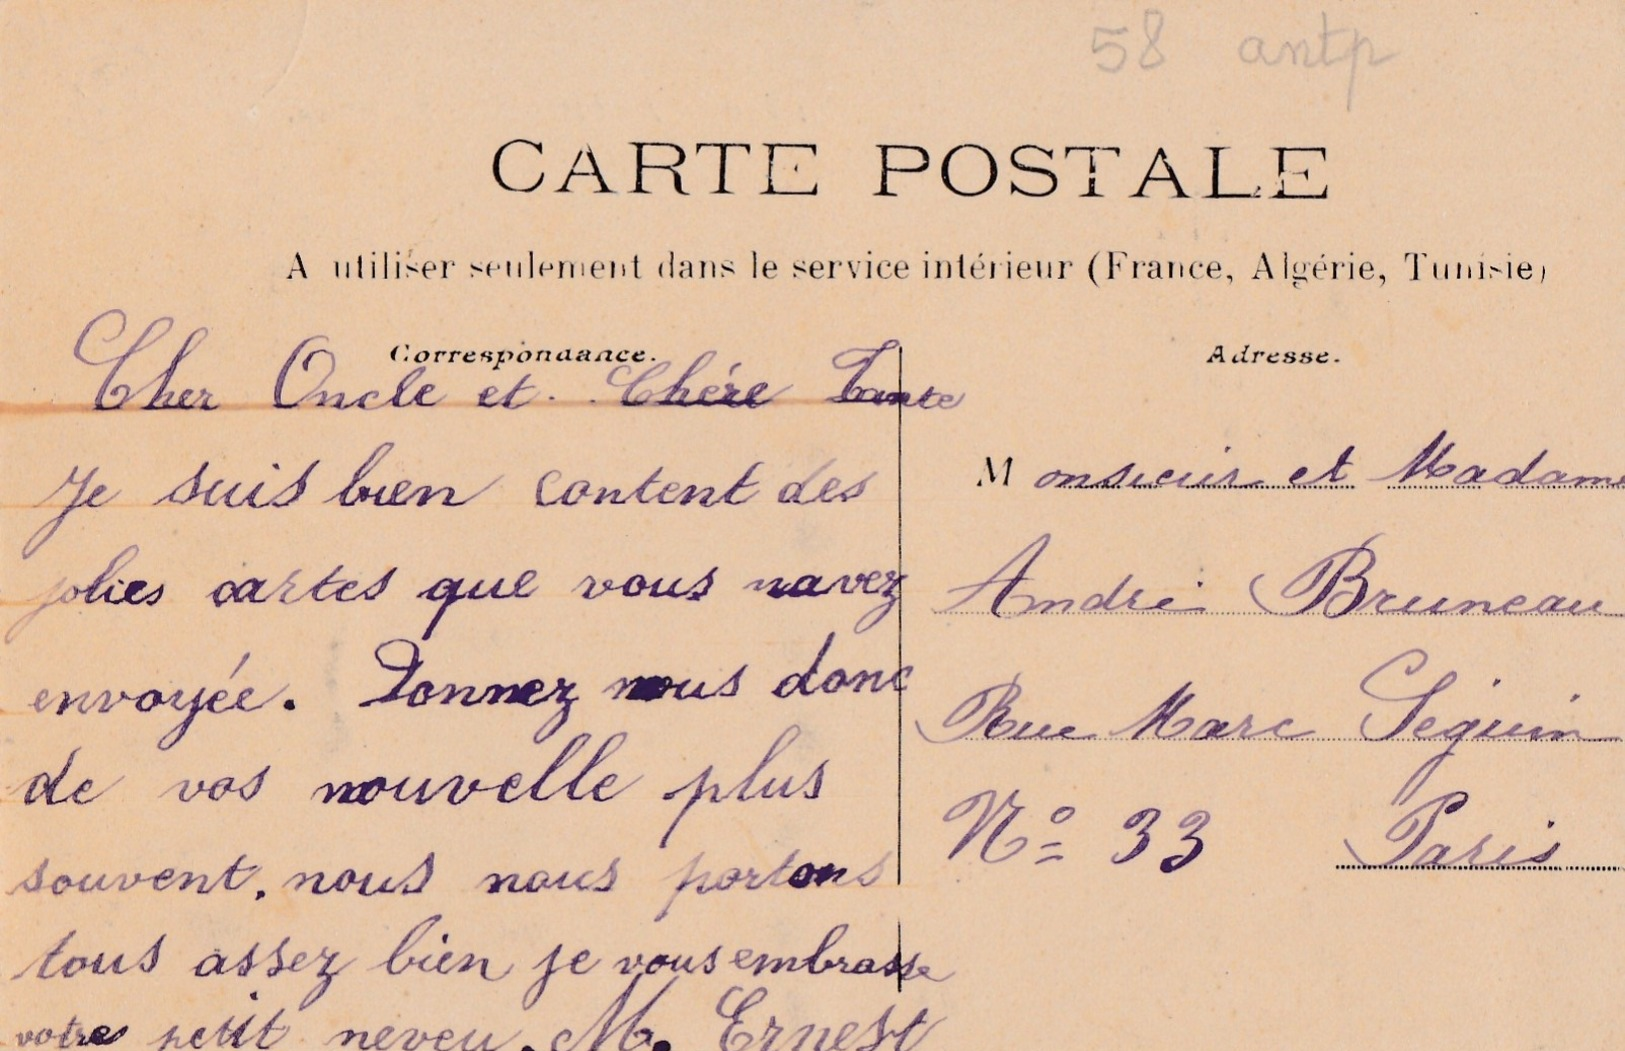 58 antp
CARTE POSTALE
A utiliser seulement dans le service intérieur (France, Algérie, Tunisie)
Correspondance.
Cher Oncle et. Chére Tante
Je suis bien content des
jolies cartes que vous navez
envoyée. Donnez nous donc
de vos nouvelle plus
souvent. nous nous portons
tous assez bien je vous embrasse
votre petit neveu. M. Ernest
Adresse.
Monsieur et Madame
André Bruneau
Rue Marc Séguin
Nº 33 Paris